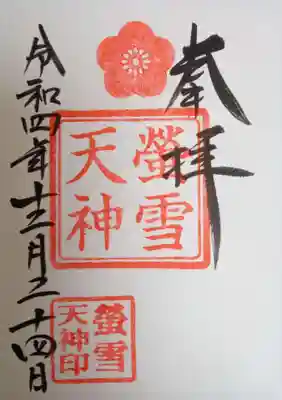 奉拝
螢雪
天神
令和四年十二月二十四日
螢雪
天神印